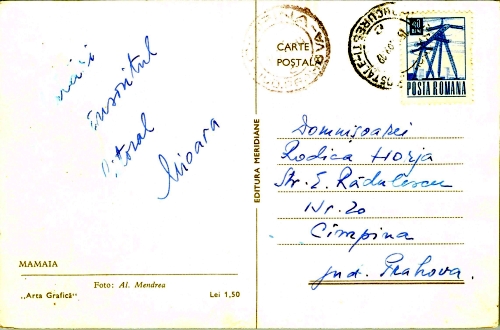 însoritul
litoral
Mioara
MAMAIA
Foto: Al. Mendrea
„Arta Grafică"
Lei 1,50
EDITURA MERIDIANE
CARTE
POȘTALĂ
BUCUREȘTI
POSTA ROMANA
Domnișoarei
Rodica Horja
Str. E. Rădulescu
Nr. 20
Cîmpina
jud. Prahova.